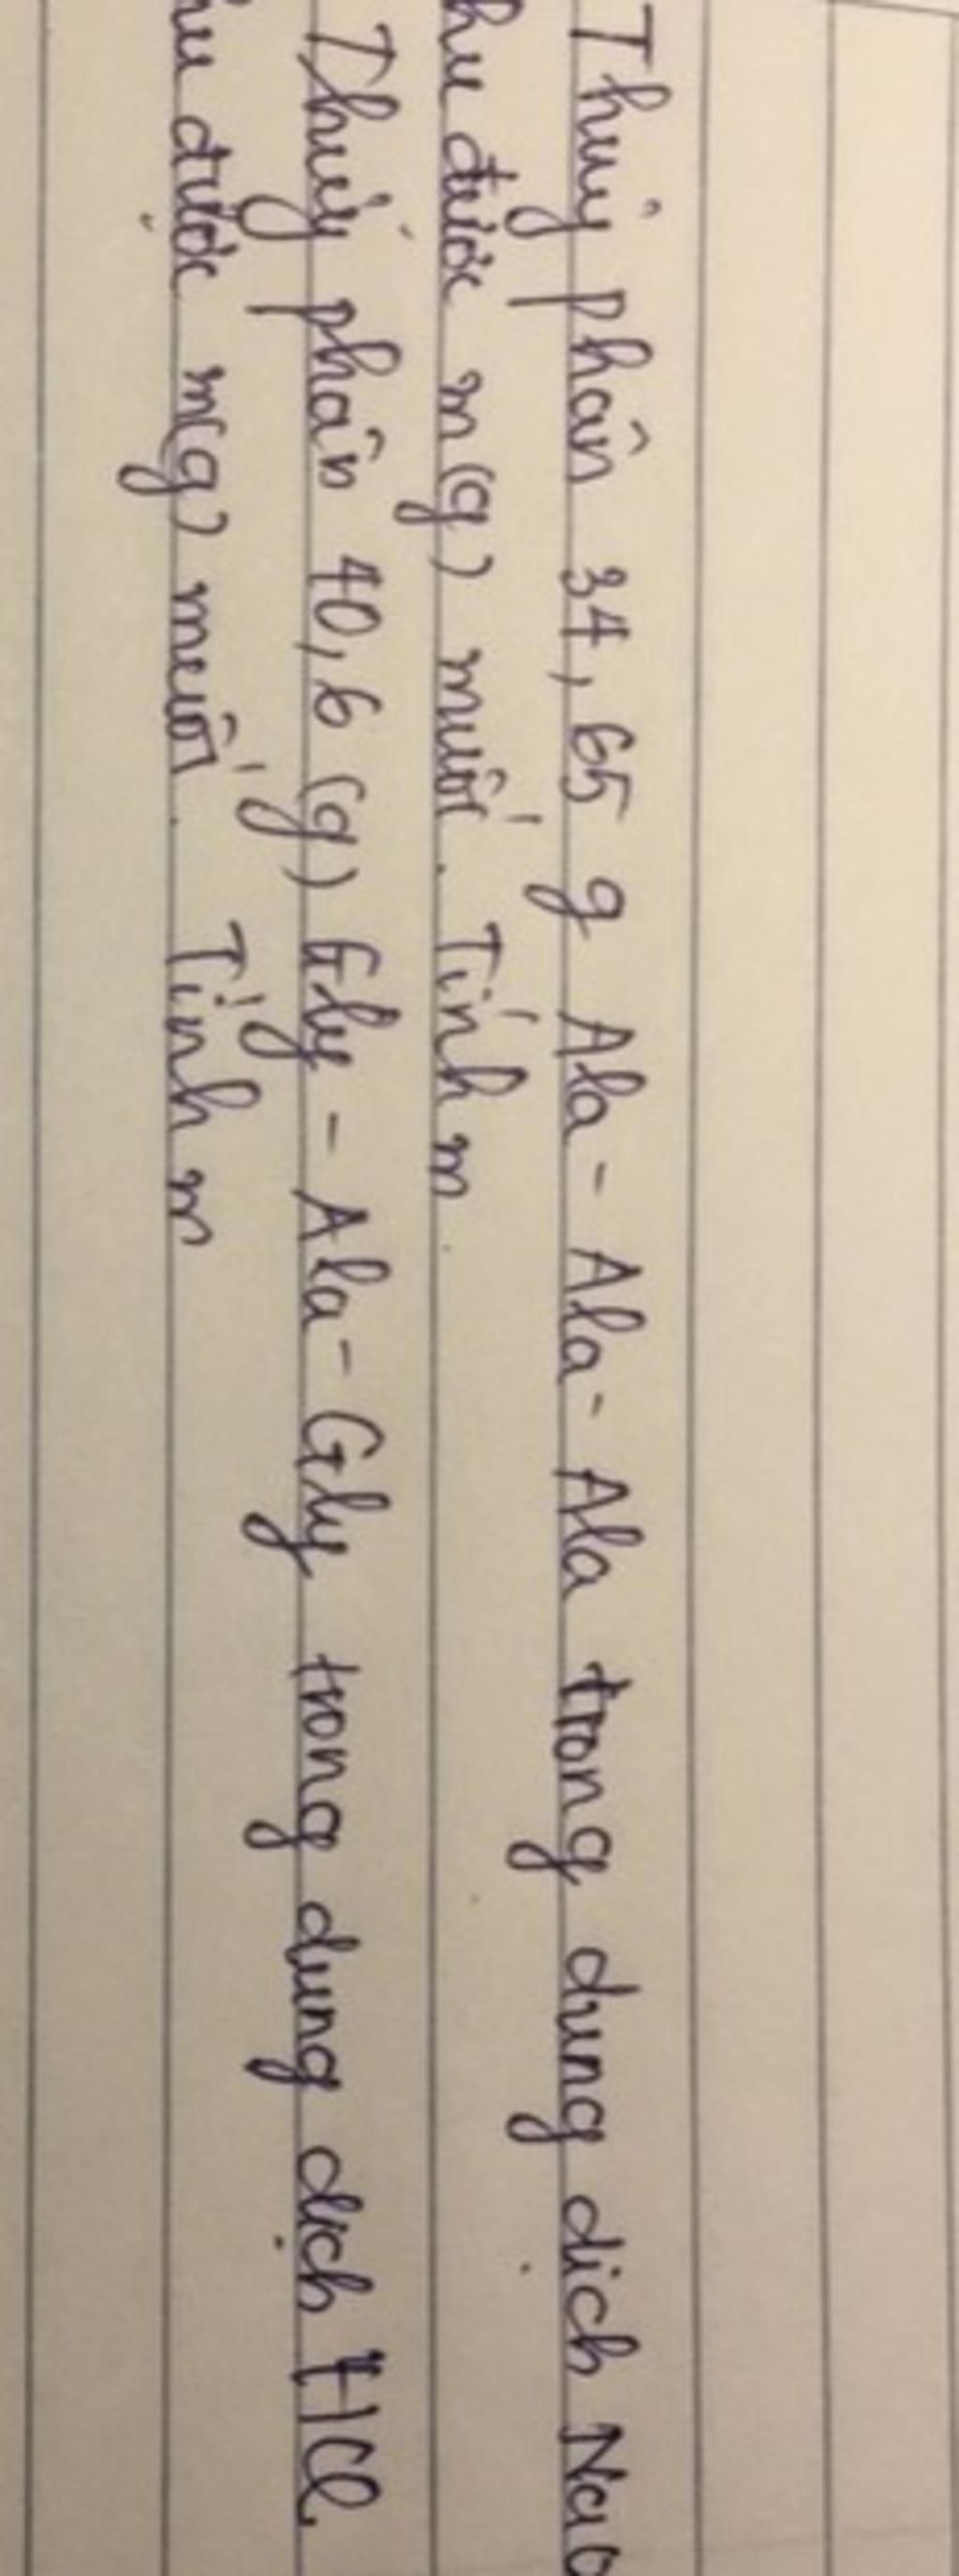 Thuỷ phân 34,65 g Ala - Ala - Ala trong dung dịch NaO
hu được m(g) muối. Tính m.
Thuỷ phân 40,6 (g) Gly - Ala - Gly trong dung dịch HCl.
hu được m(g) muối. Tính m